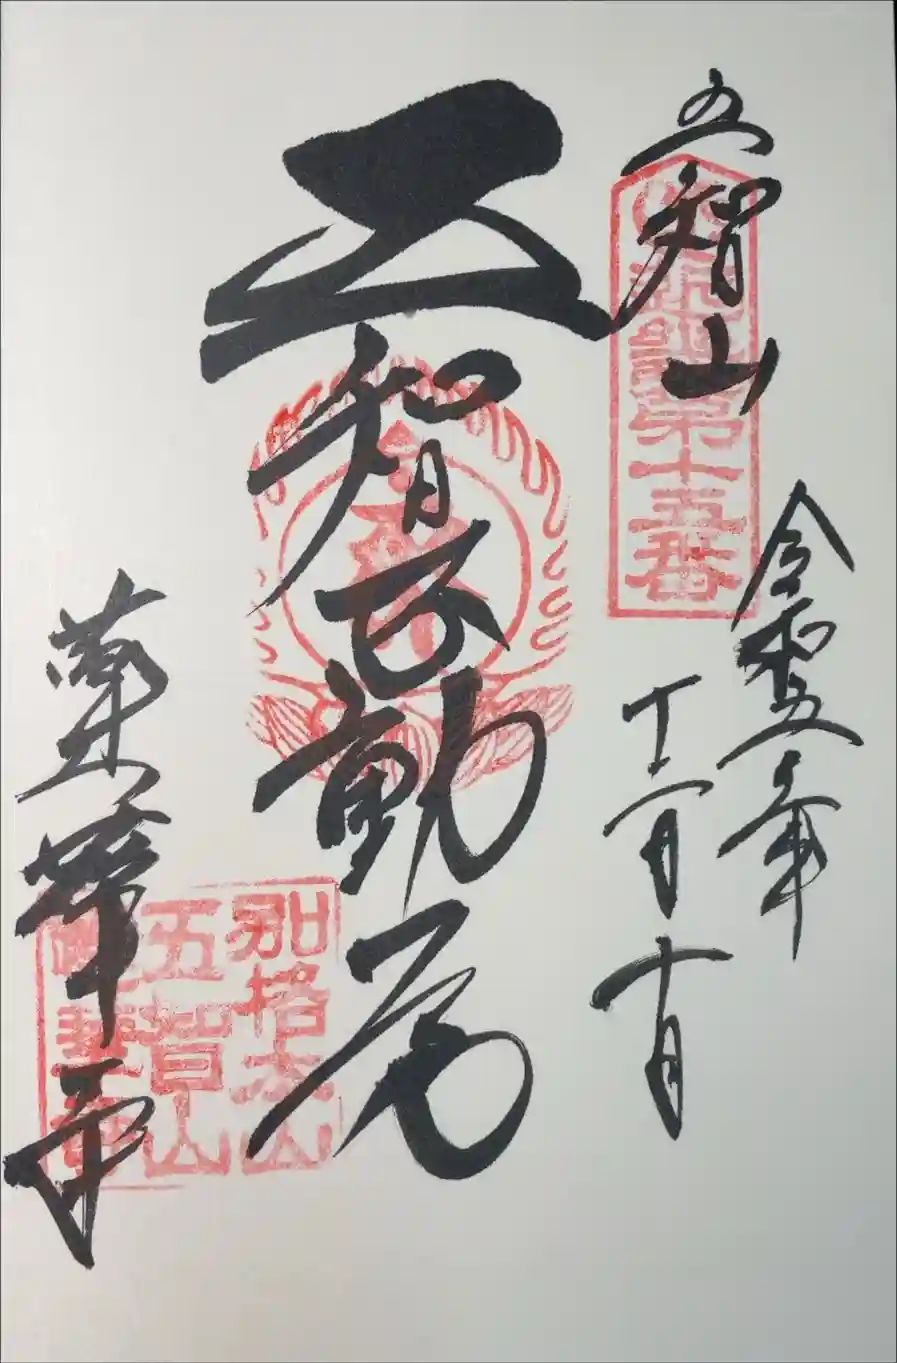 五智山
第十五番
令和五年
十一月十日
五智不動尊
蓮華寺
別格本山
五智山
蓮華寺